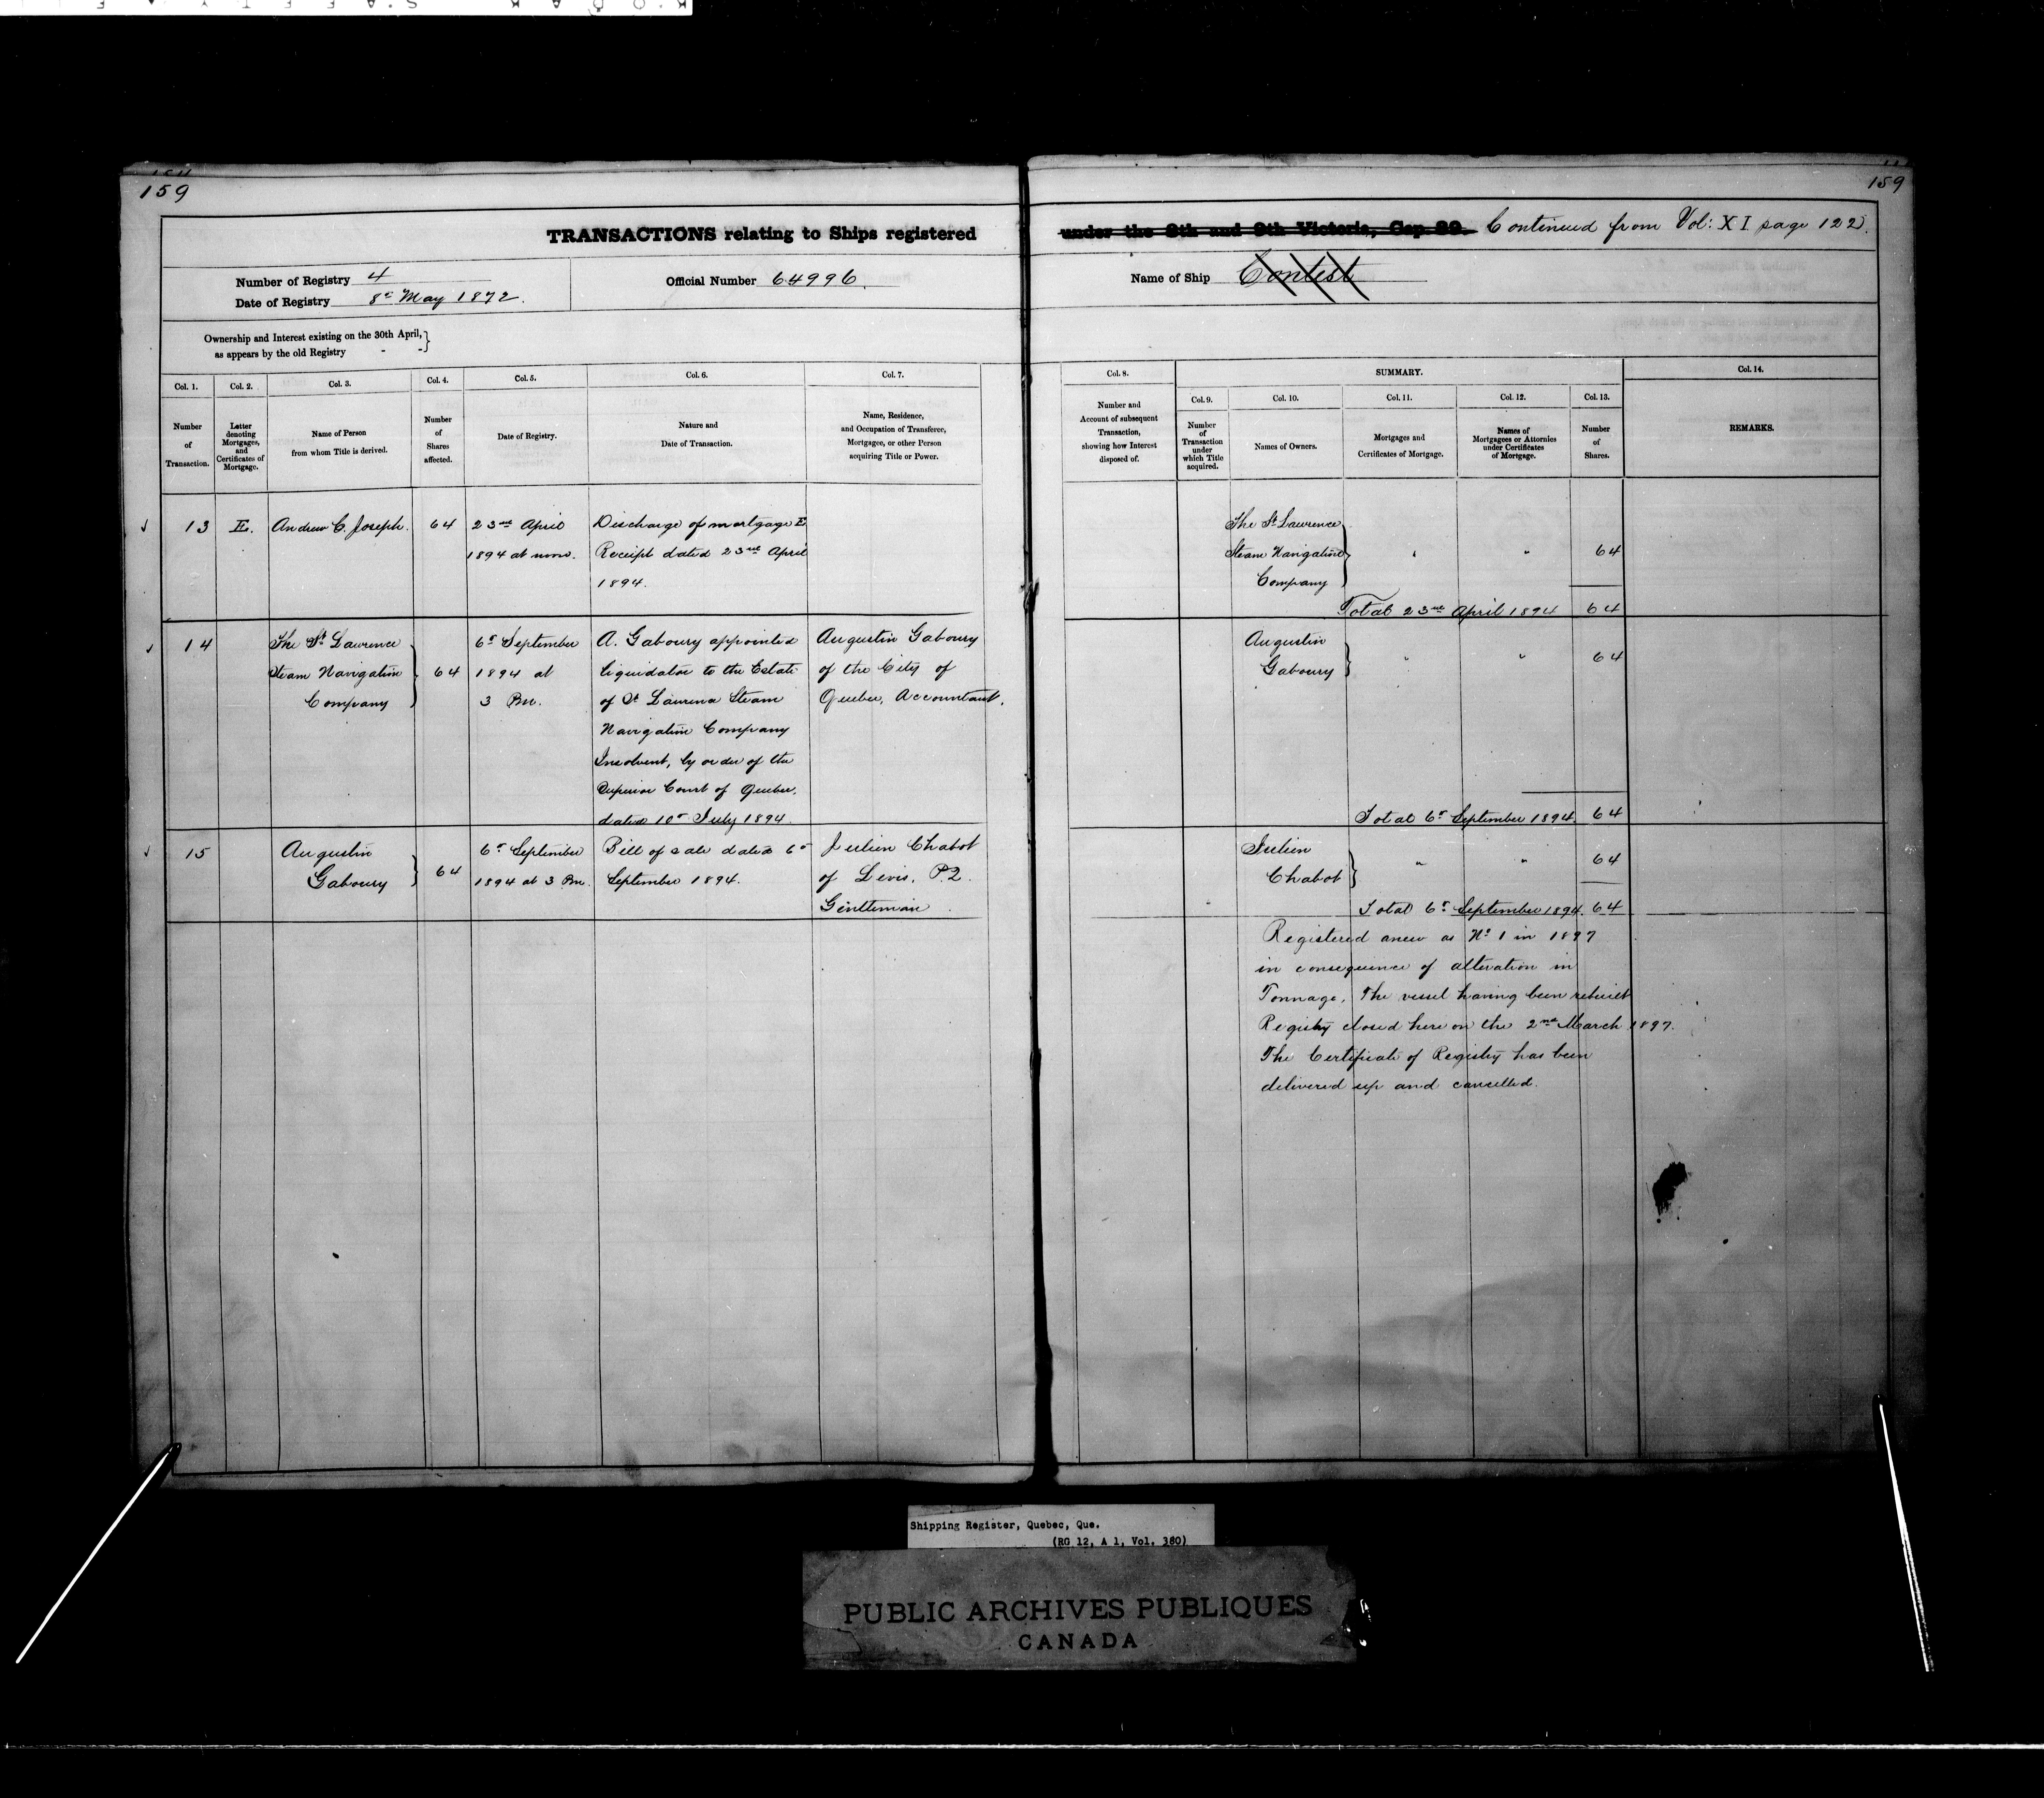 159
159
TRANSACTIONS relating to Ships registered under the 8th and 9th Victoria, Cap. 89. Continued from Vol: XI page 122.
Number of Registry 4
Date of Registry 8th May 1872.
Official Number 64996.
Name of Ship Contest
Ownership and Interest existing on the 30th April,
as appears by the old Registry
Col. 1.
Number
of
Transaction.
Col. 2.
Letter
denoting
Mortgages,
and
Certificates of
Mortgage.
Col. 3.
Name of Person
from whom Title is derived.
Col. 4.
Number
of
Shares
affected.
Col. 5.
Date of Registry.
Col. 6.
Nature and
Date of Transaction.
Col. 7.
Name, Residence,
and Occupation of Transferee,
Mortgagee, or other Person
acquiring Title or Power.
Col. 8.
Number and
Account of subsequent
Transaction,
showing how Interest
disposed of.
SUMMARY.
Col. 9.
Number
of
Transaction
under
which Title
acquired.
Col. 10.
Names of Owners.
Col. 11.
Mortgages and
Certificates of Mortgage.
Col. 12.
Names of
Mortgagees or Attornies
under Certificates
of Mortgage.
Col. 13.
Number
of
Shares.
Col. 14.
REMARKS.
13
E.
Andrew C. Joseph.
64
23rd April
1894 at noon.
Discharge of mortgage E
Receipt dated 23rd April
1894.
The St Lawrence
Steam Navigation
Company
" " 64
Total 23rd April 1894 64
14
The St Lawrence
Steam Navigation
Company
64
6th September
1894 at
3 Pm.
A. Gaboury appointed
liquidator to the Estate
of St Laurence Steam
Navigation Company
Insolvent, by order of the
Superior Court of Quebec,
dated 10th July 1894.
Augustin Gaboury
of the City of
Quebec, Accountant.
Augustin
Gaboury
" " 64
Total 6th September 1894. 64
15
Augustin
Gaboury
64
6th September
1894 at 3 Pm.
Bill of sale dated 6th
September 1894.
Julien Chabot
of Levis, P.Q.
Gentleman
Julien
Chabot
" " 64
Total 6th September 1894. 64
Registered anew as No 1 in 1897
in consequence of alteration in
Tonnage, The vessel having been rebuilt
Registry closed here on the 2nd March 1897.
The Certificate of Registry has been
delivered up and cancelled.
Shipping Register, Quebec, Que.
(RG 12, A 1, Vol. 380)
PUBLIC ARCHIVES PUBLIQUES
CANADA